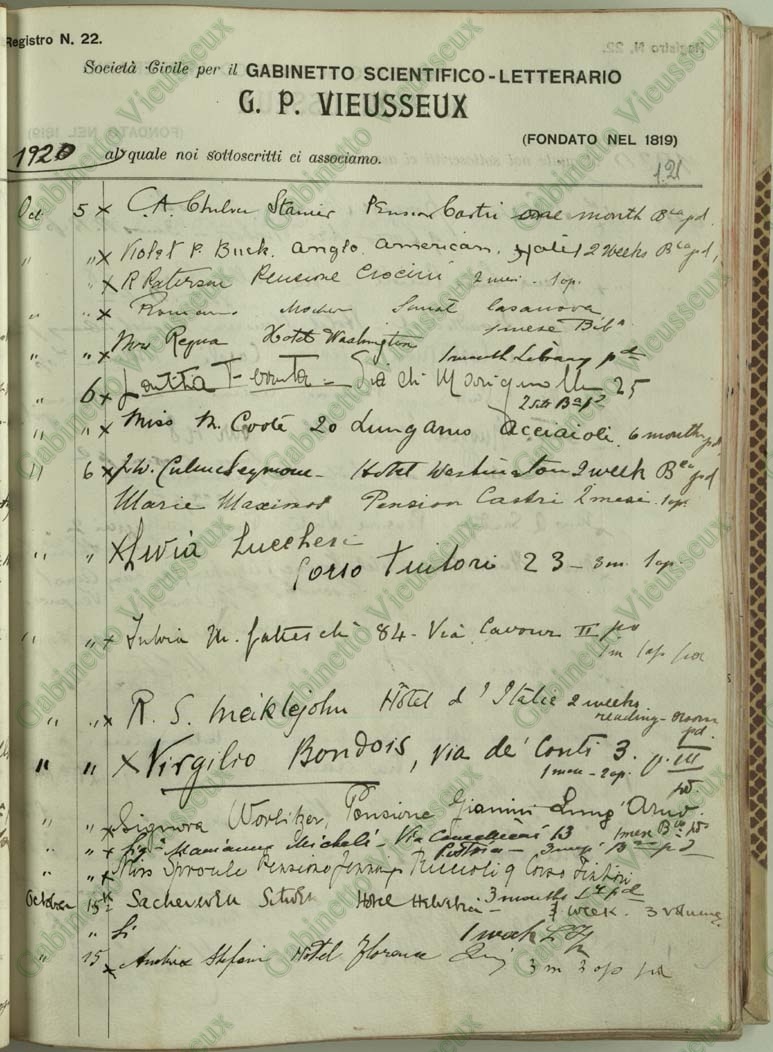 Registro N. 22.
Società Civile per il GABINETTO SCIENTIFICO-LETTERARIO
G. P. VIEUSSEUX
(FONDATO NEL 1819)
1920 al quale noi sottoscritti ci associamo.
121
Oct 5 x C. A. Stanier Pension Castri one month Bca pd.
" " x Violet P. Buck. Anglo American. Hotel 2 weeks Bca pd,
x R Paterson Pensione Crocini 2 mesi - 1 op.
" " x Casanova
1 mese Bibca
" " x Mrs Regua Hotel Washington
1 month Library pd
" 6 x Via di 25
" " x Miss M. Coote 20 Lungarno Acciaioli. 6 months pd
" 6 x Seymour - Hotel Washington 2 week Bca pd
Marie Maximof Pension Castri 2 mesi. 1 op.
" " x Livia Lucchesi
Corso Tintori 23 - 3 m. 1 op.
" " x Fulvia M. Gatteschi 84 - Via Cavour II po
1 m 1 op pd
" " x R. S. Meiklejohn Hôtel d'Italie 2 weeks
reading-room
pd.
" " x Virgilio Bondois, via de' Conti 3. p. III
1 mese - 2 op. pd.
" " x Signora Worlitzer, Pensione Giannini Lung'Arno.
1 mese Bca pd
" " x Marianna Micheli - Via 13
Pistoia - 3 mesi Bca pd
" " x Miss Sproule Pensione Jennings Riccioli 9 Corso Tintori
3 months pd
October 15th Sacheverell Sitwell Hotel Helvetia - 1 week. 3 volumes.
" 1 week
" 15 x Andrea Stefani Hotel Florence 3 m 3 op pd